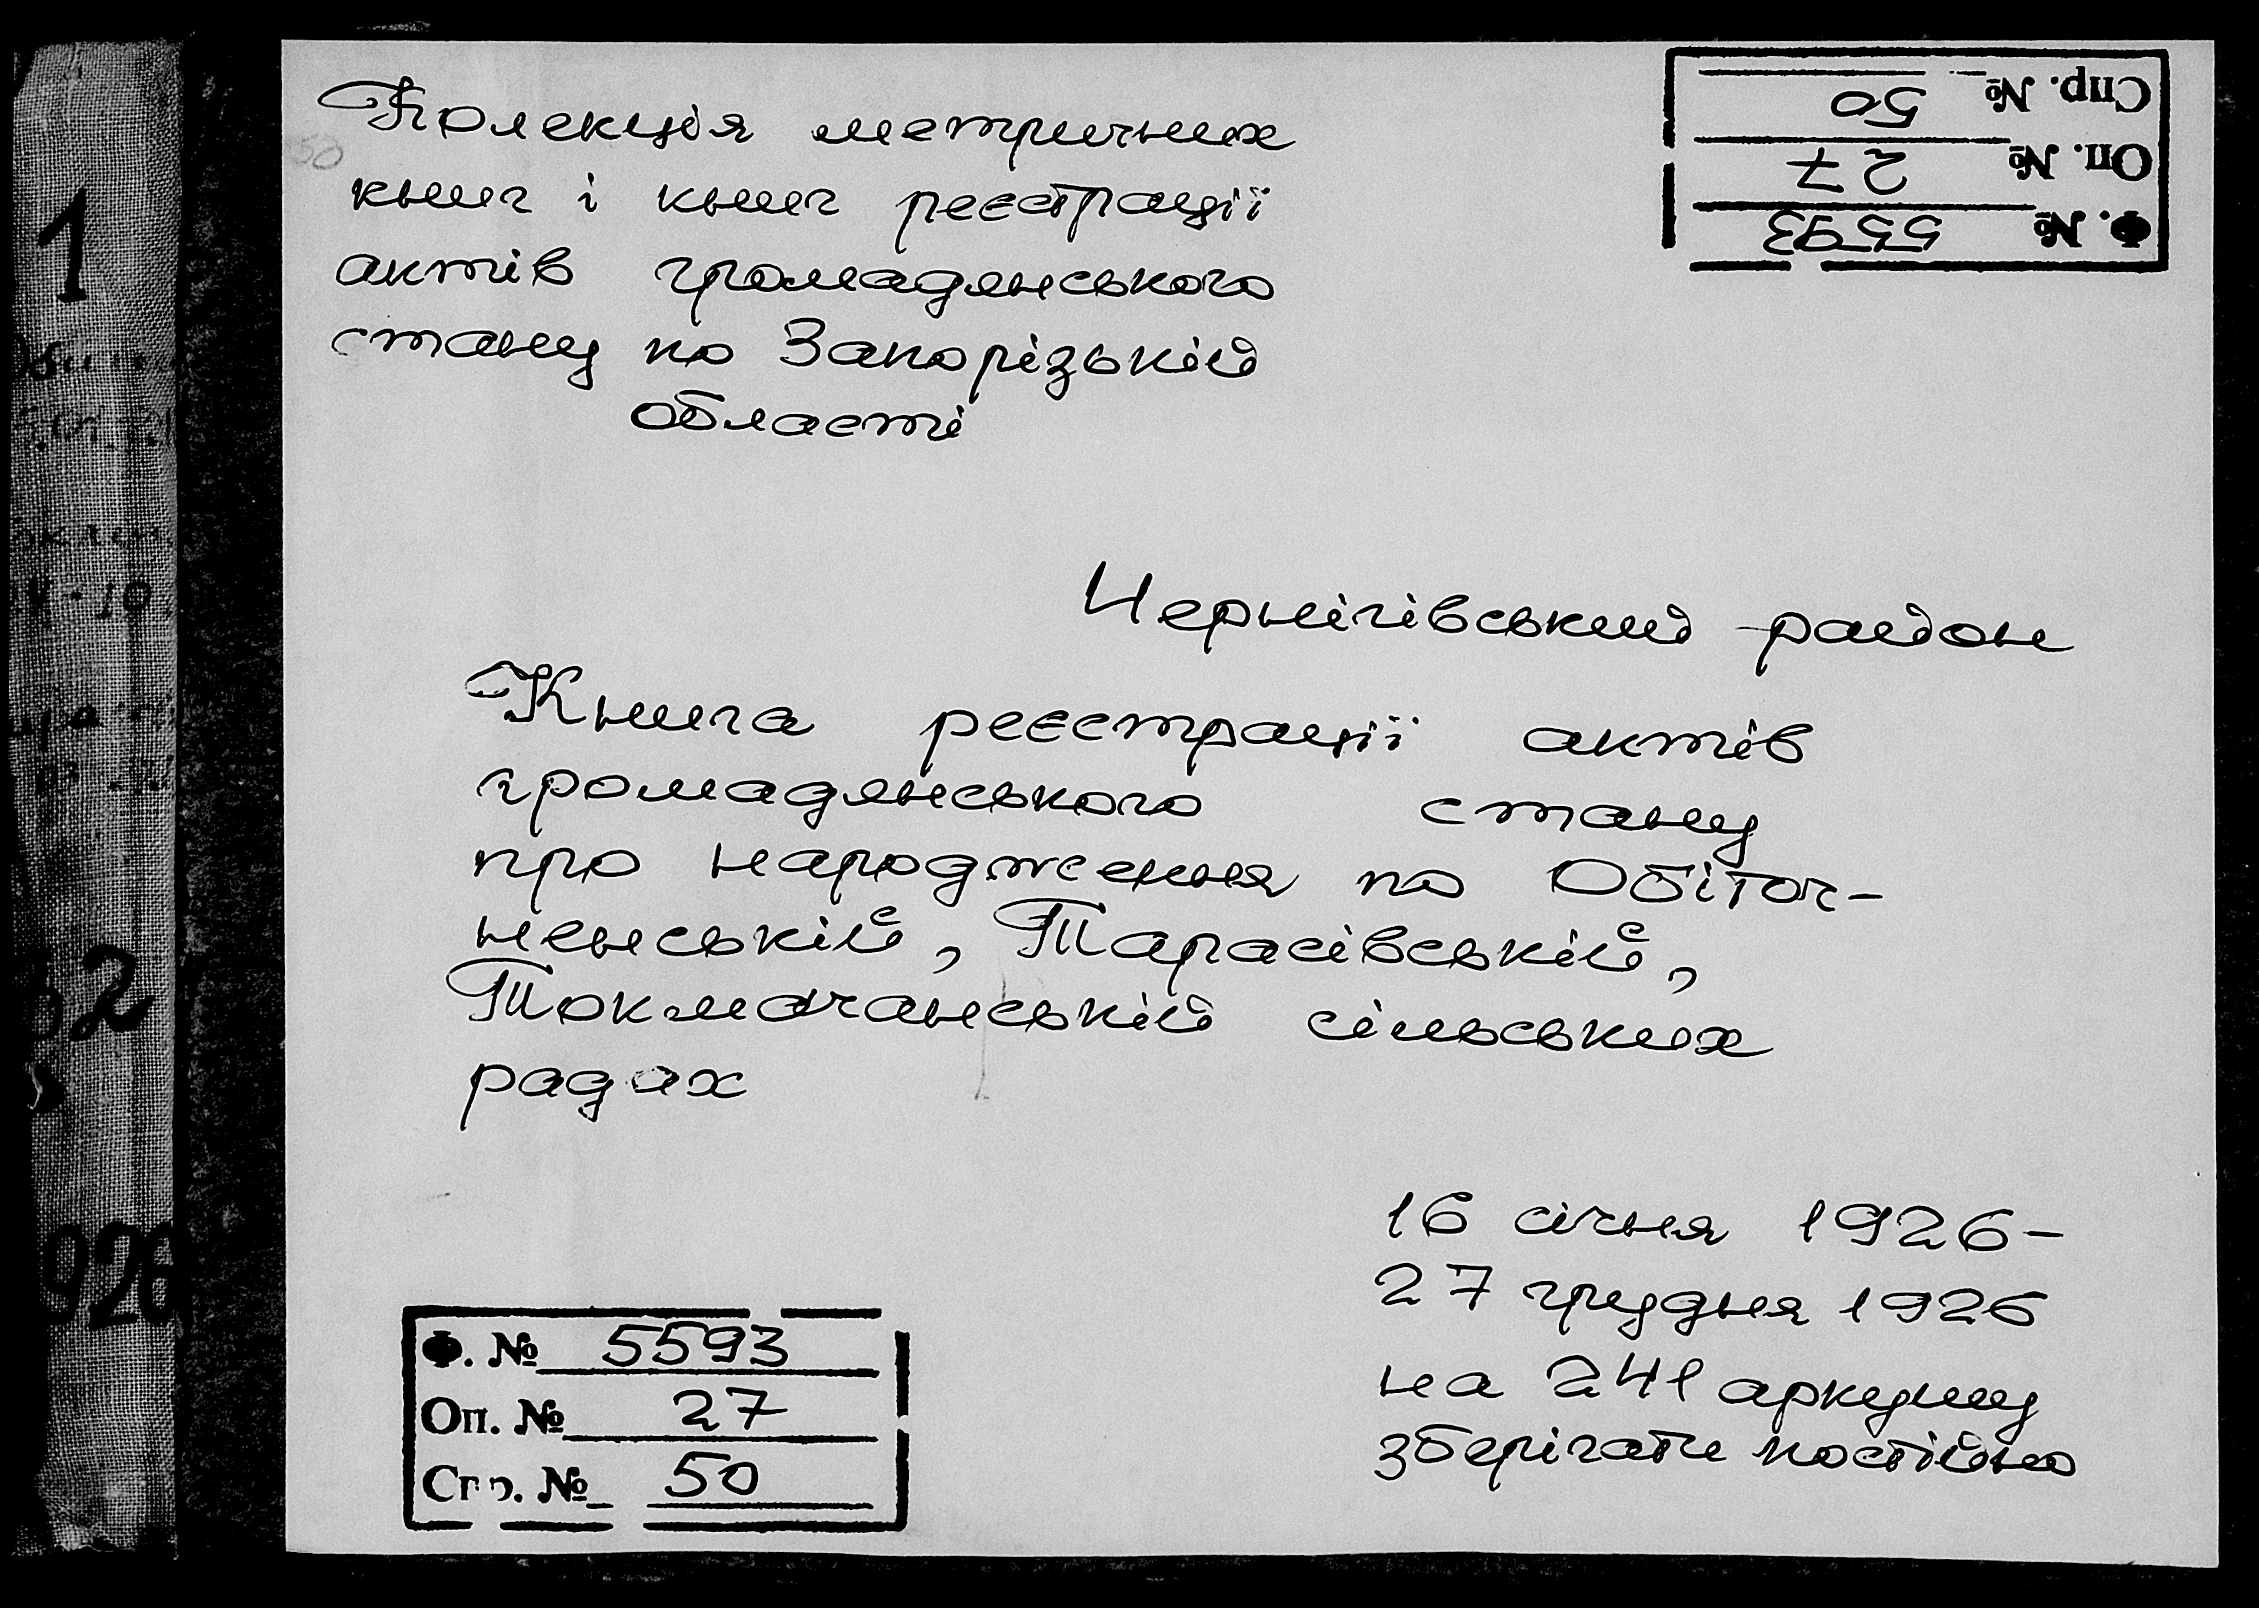 Колекція метричних
книг і книг реєстрації
актів громадянського
стану по Запорізькій
області
Спр. № 50
Оп. № 27
Ф. № 5593
50
Чернігівський район
Книга реєстрації актів
громадянського стану
про народження по Обіточ-
ненській, Тарасівській,
Токмачанській сільських
радах
16 січня 1926-
27 грудня 1926
на 241 аркушу
зберігати постійно
Ф. № 5593
Оп. № 27
Спр. № 50
1